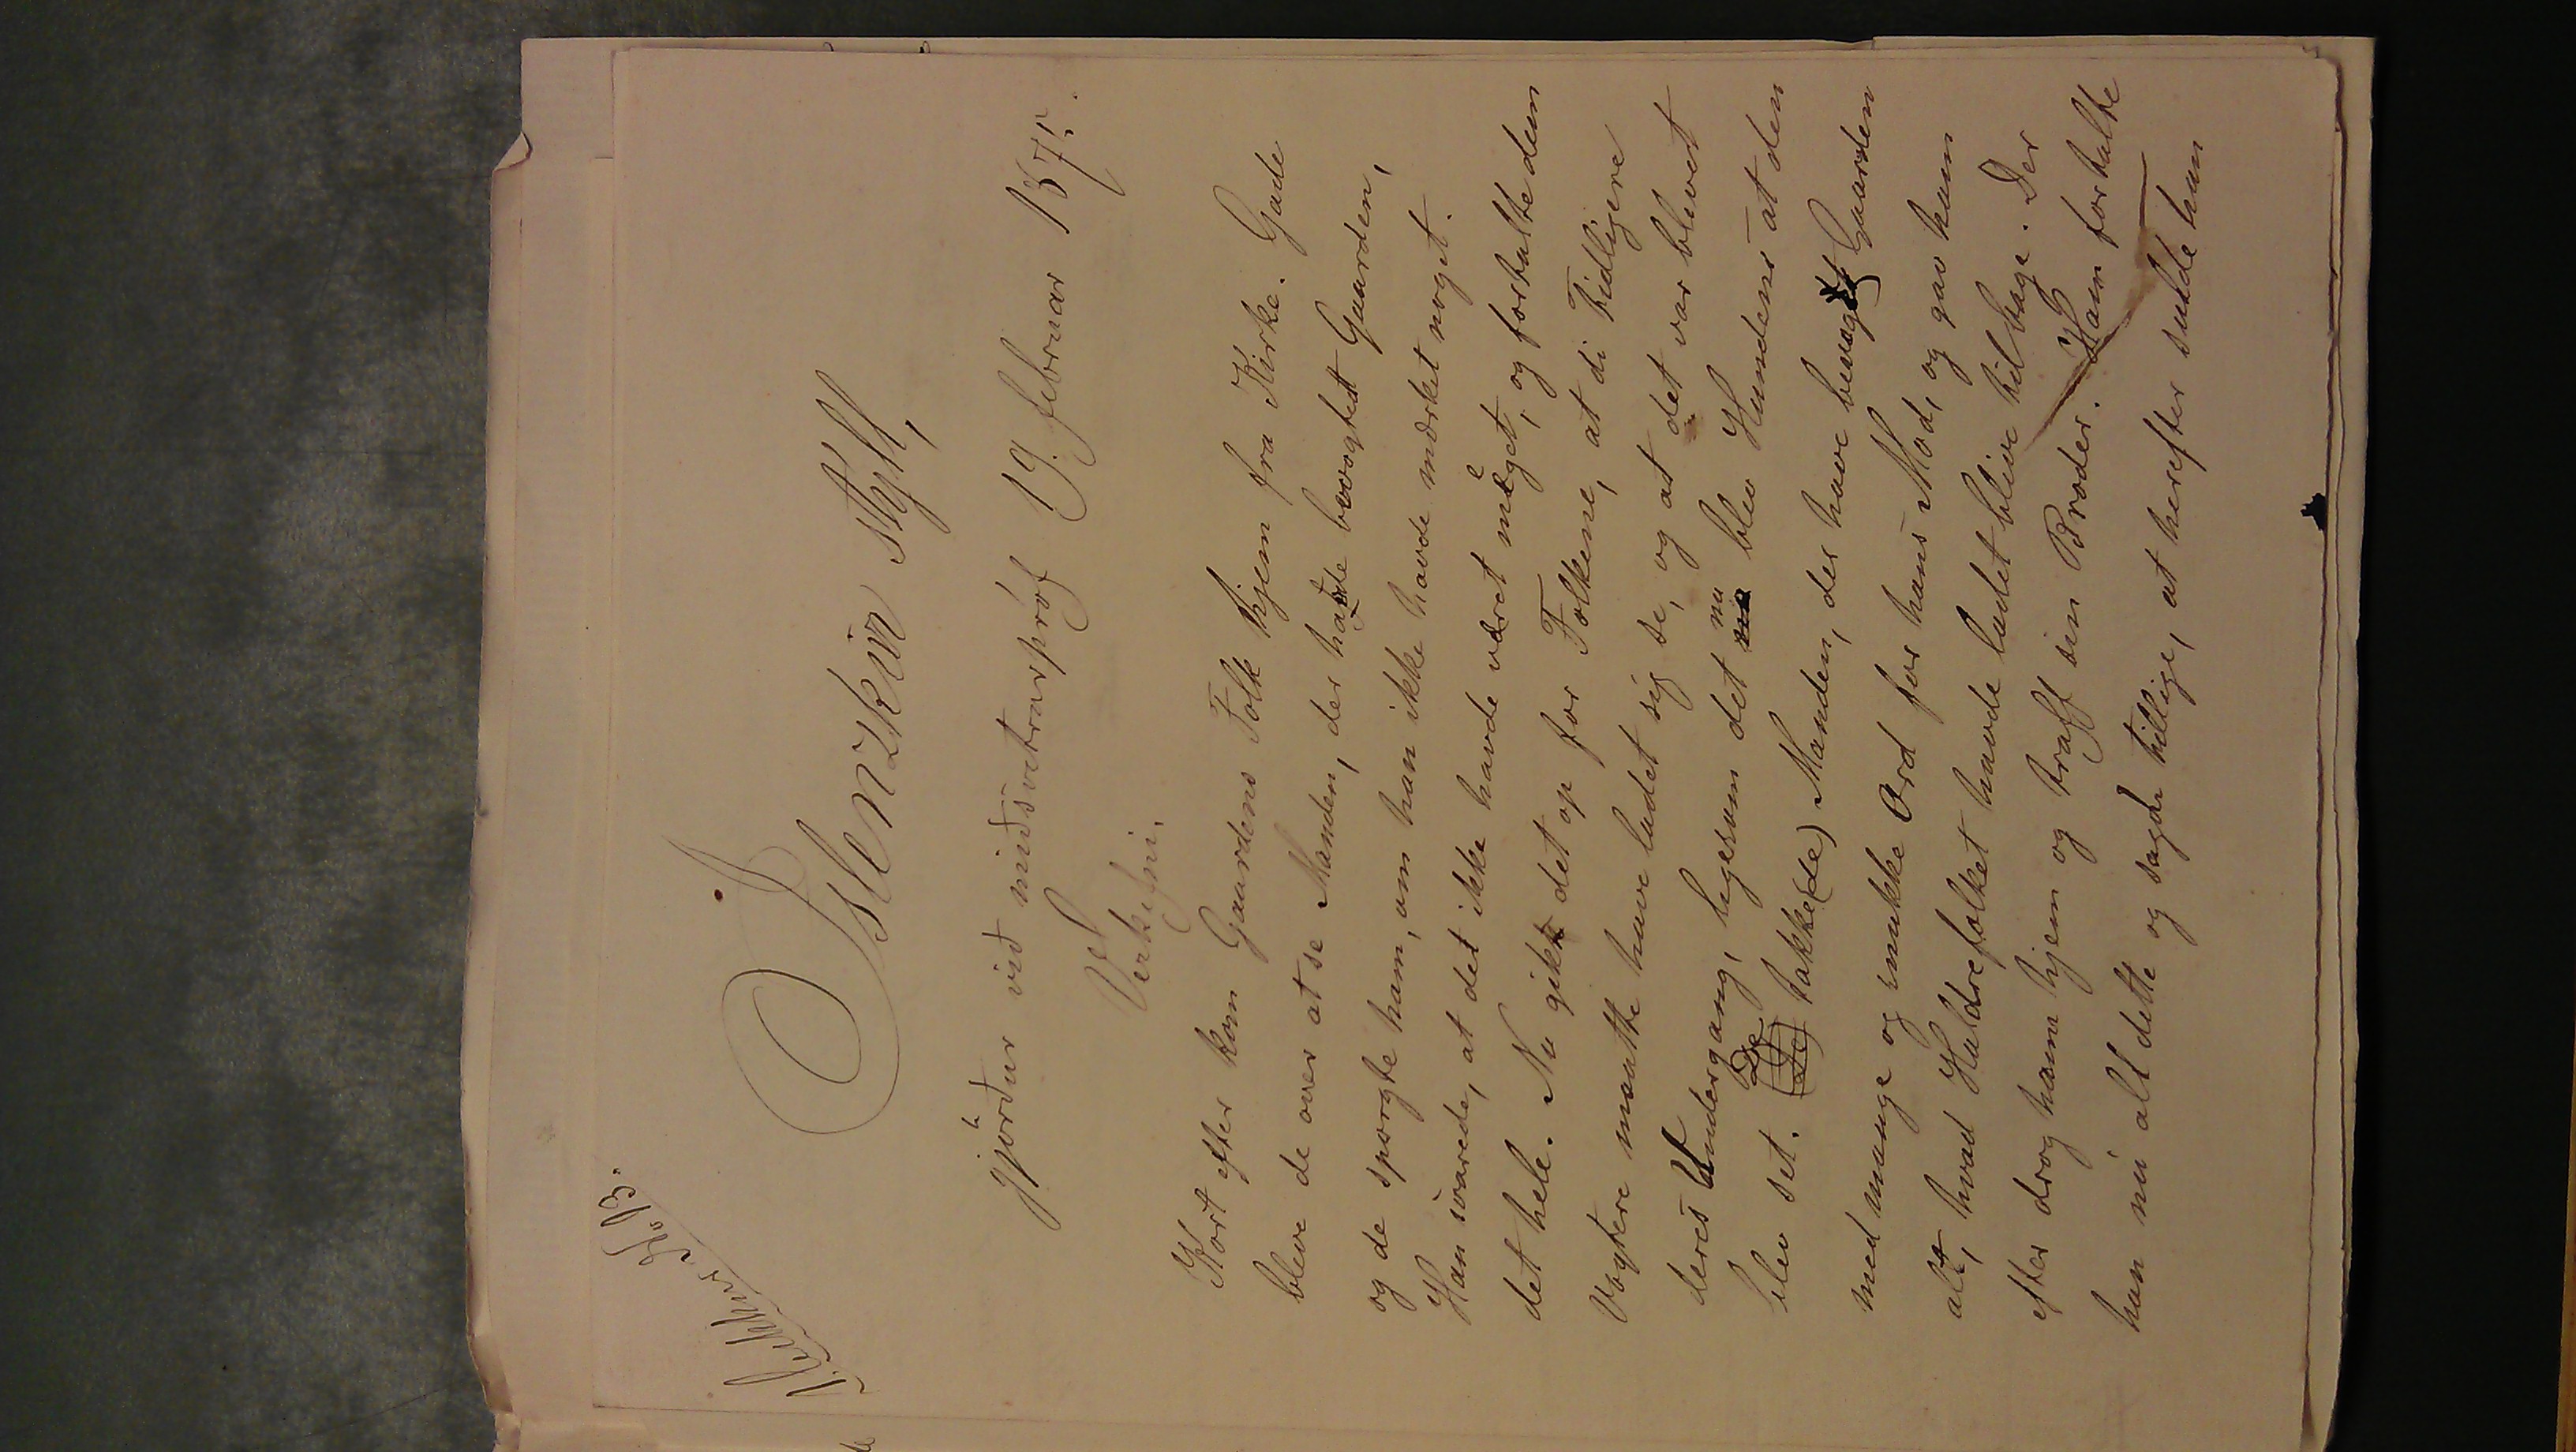 Íslenzkur stýll,
gjörður við miðsvetrarpróf 19. februar 1875.
Verkefni.
Kort efter kom Gaardens Folk hjem fra Kirke. Glade
bleve de over at se Manden, der havde bevogtet Gaarden,
og de spørgte ham, om han ikke havde mærket noget.
Han svarede, at det ikke havde været meget, og fortalte dem
det hele. Nu gik det op for Folkene, at di tidligere
Vogtere maatte have ladet sig se, og at det var blevet
deres Undergang, ligesom det nu blev Hundens at den
blev set. De takke(de) Manden, der have bevogtet Gaarden
med mange og smukke Ord for hans Mod, og gav ham
alt, hvad Huldrefolket havde ladet blive tilbage. Der
efter drog hann hjem og traff sin Broder. Ham fortalte
han nú alt dette og sagde tillige, at herefter skulde han